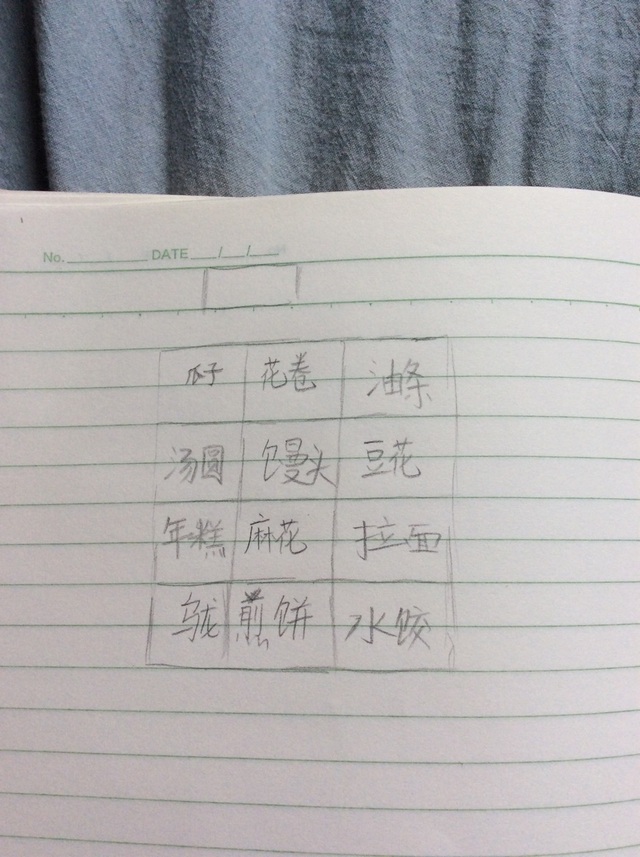 No. DATE / /
瓜子 花卷 油条
汤圆 馒头 豆花
年糕 麻花 拉面
乌龙 煎饼 水饺